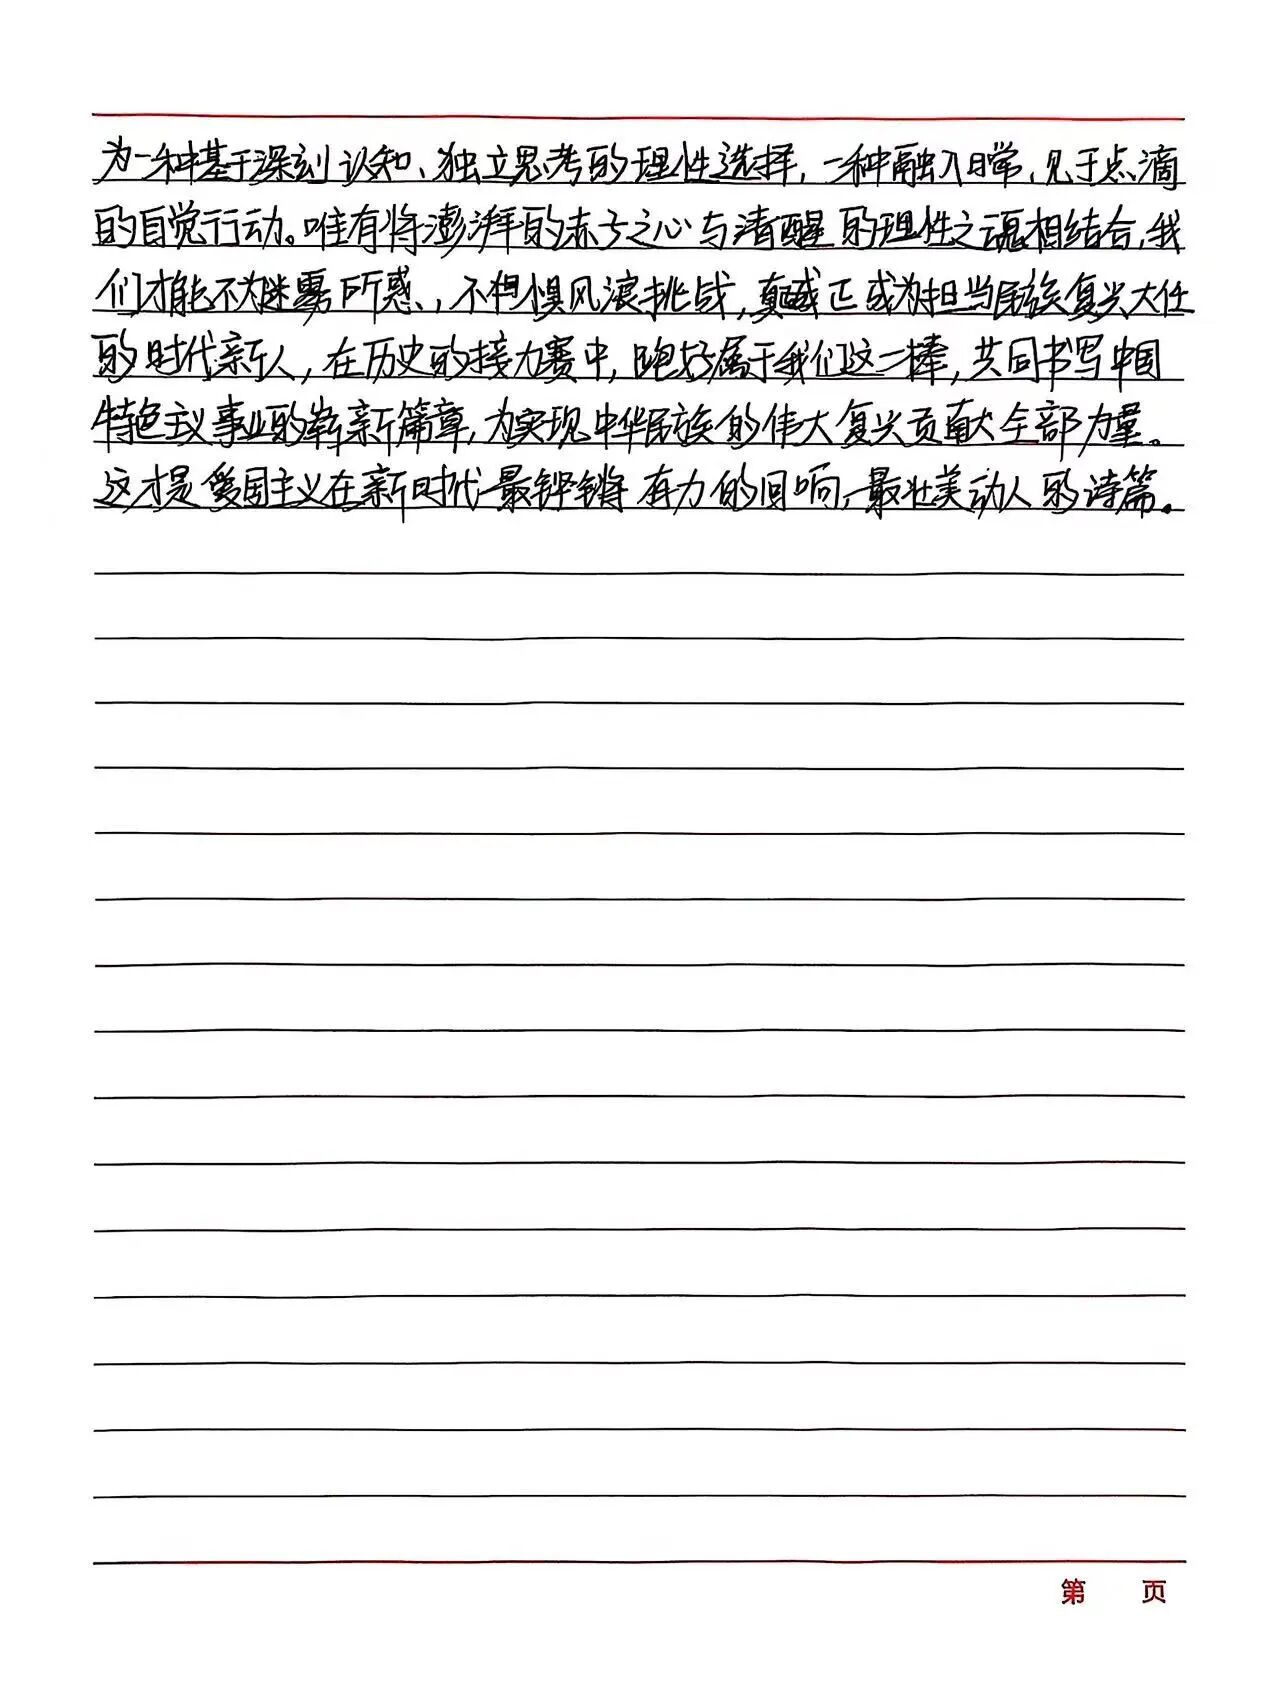 为一种基于深刻认知、独立思考的理性选择，一种融入日常，见于点滴
的自觉行动。唯有将澎湃的赤子之心与清醒的理性之魂相结合，我
们才能不为迷雾所惑，不惧风浪挑战，真正成为担当民族复兴大任
的时代新人，在历史的接力赛中，跑好属于我们这一棒，共同书写中国
特色主义事业的崭新篇章，为实现中华民族的伟大复兴贡献全部力量。
这才是爱国主义在新时代最铿锵有力的回响，最壮美动人的诗篇。
第 页